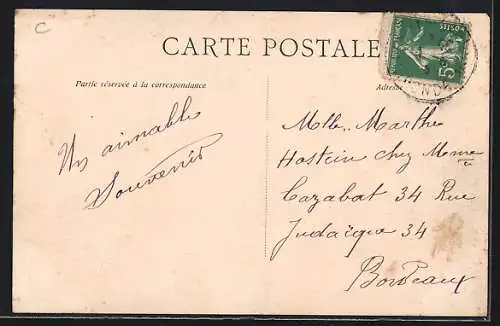 C
CARTE POSTALE
Partie réservée à la correspondance
Adresse
Un aimable
Souvenir
Mlle. Marthe
Hostein chez Mme
Cazabat 34 Rue
Judaïque 34
Bordeaux
5